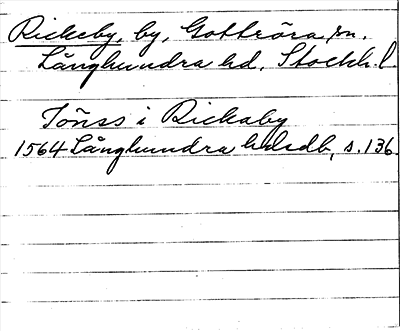 Rickeby, by, Gottröra sn.
Långhundra hd, Stockh. l.
Tönss i Rickaby
1564 Långhundra hdsdb, s. 136.